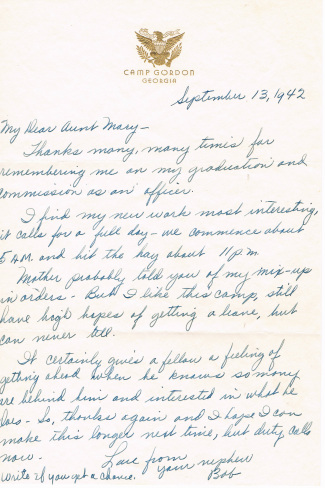 CAMP GORDON
GEORGIA
September 13, 1942
My Dear Aunt Mary-
Thanks many, many times for
remembering me on my graduation and
commission as an officer.
I find my new work most interesting,
it calls for a full day - we commence about
5 A.M. and hit the hay about 11 P.M.
Mother probably told you of my mix-up
in orders - But I like this camp, still
have high hopes of getting a leave, but
can never tell.
It certainly gives a fellow a feeling of
getting ahead when he knows so many
are behind him and interested in what he
does - So, thanks again and I hope I can
make this longer next time, but duty calls
now. - Love from
your nephew
Write if you get a chance. Bob